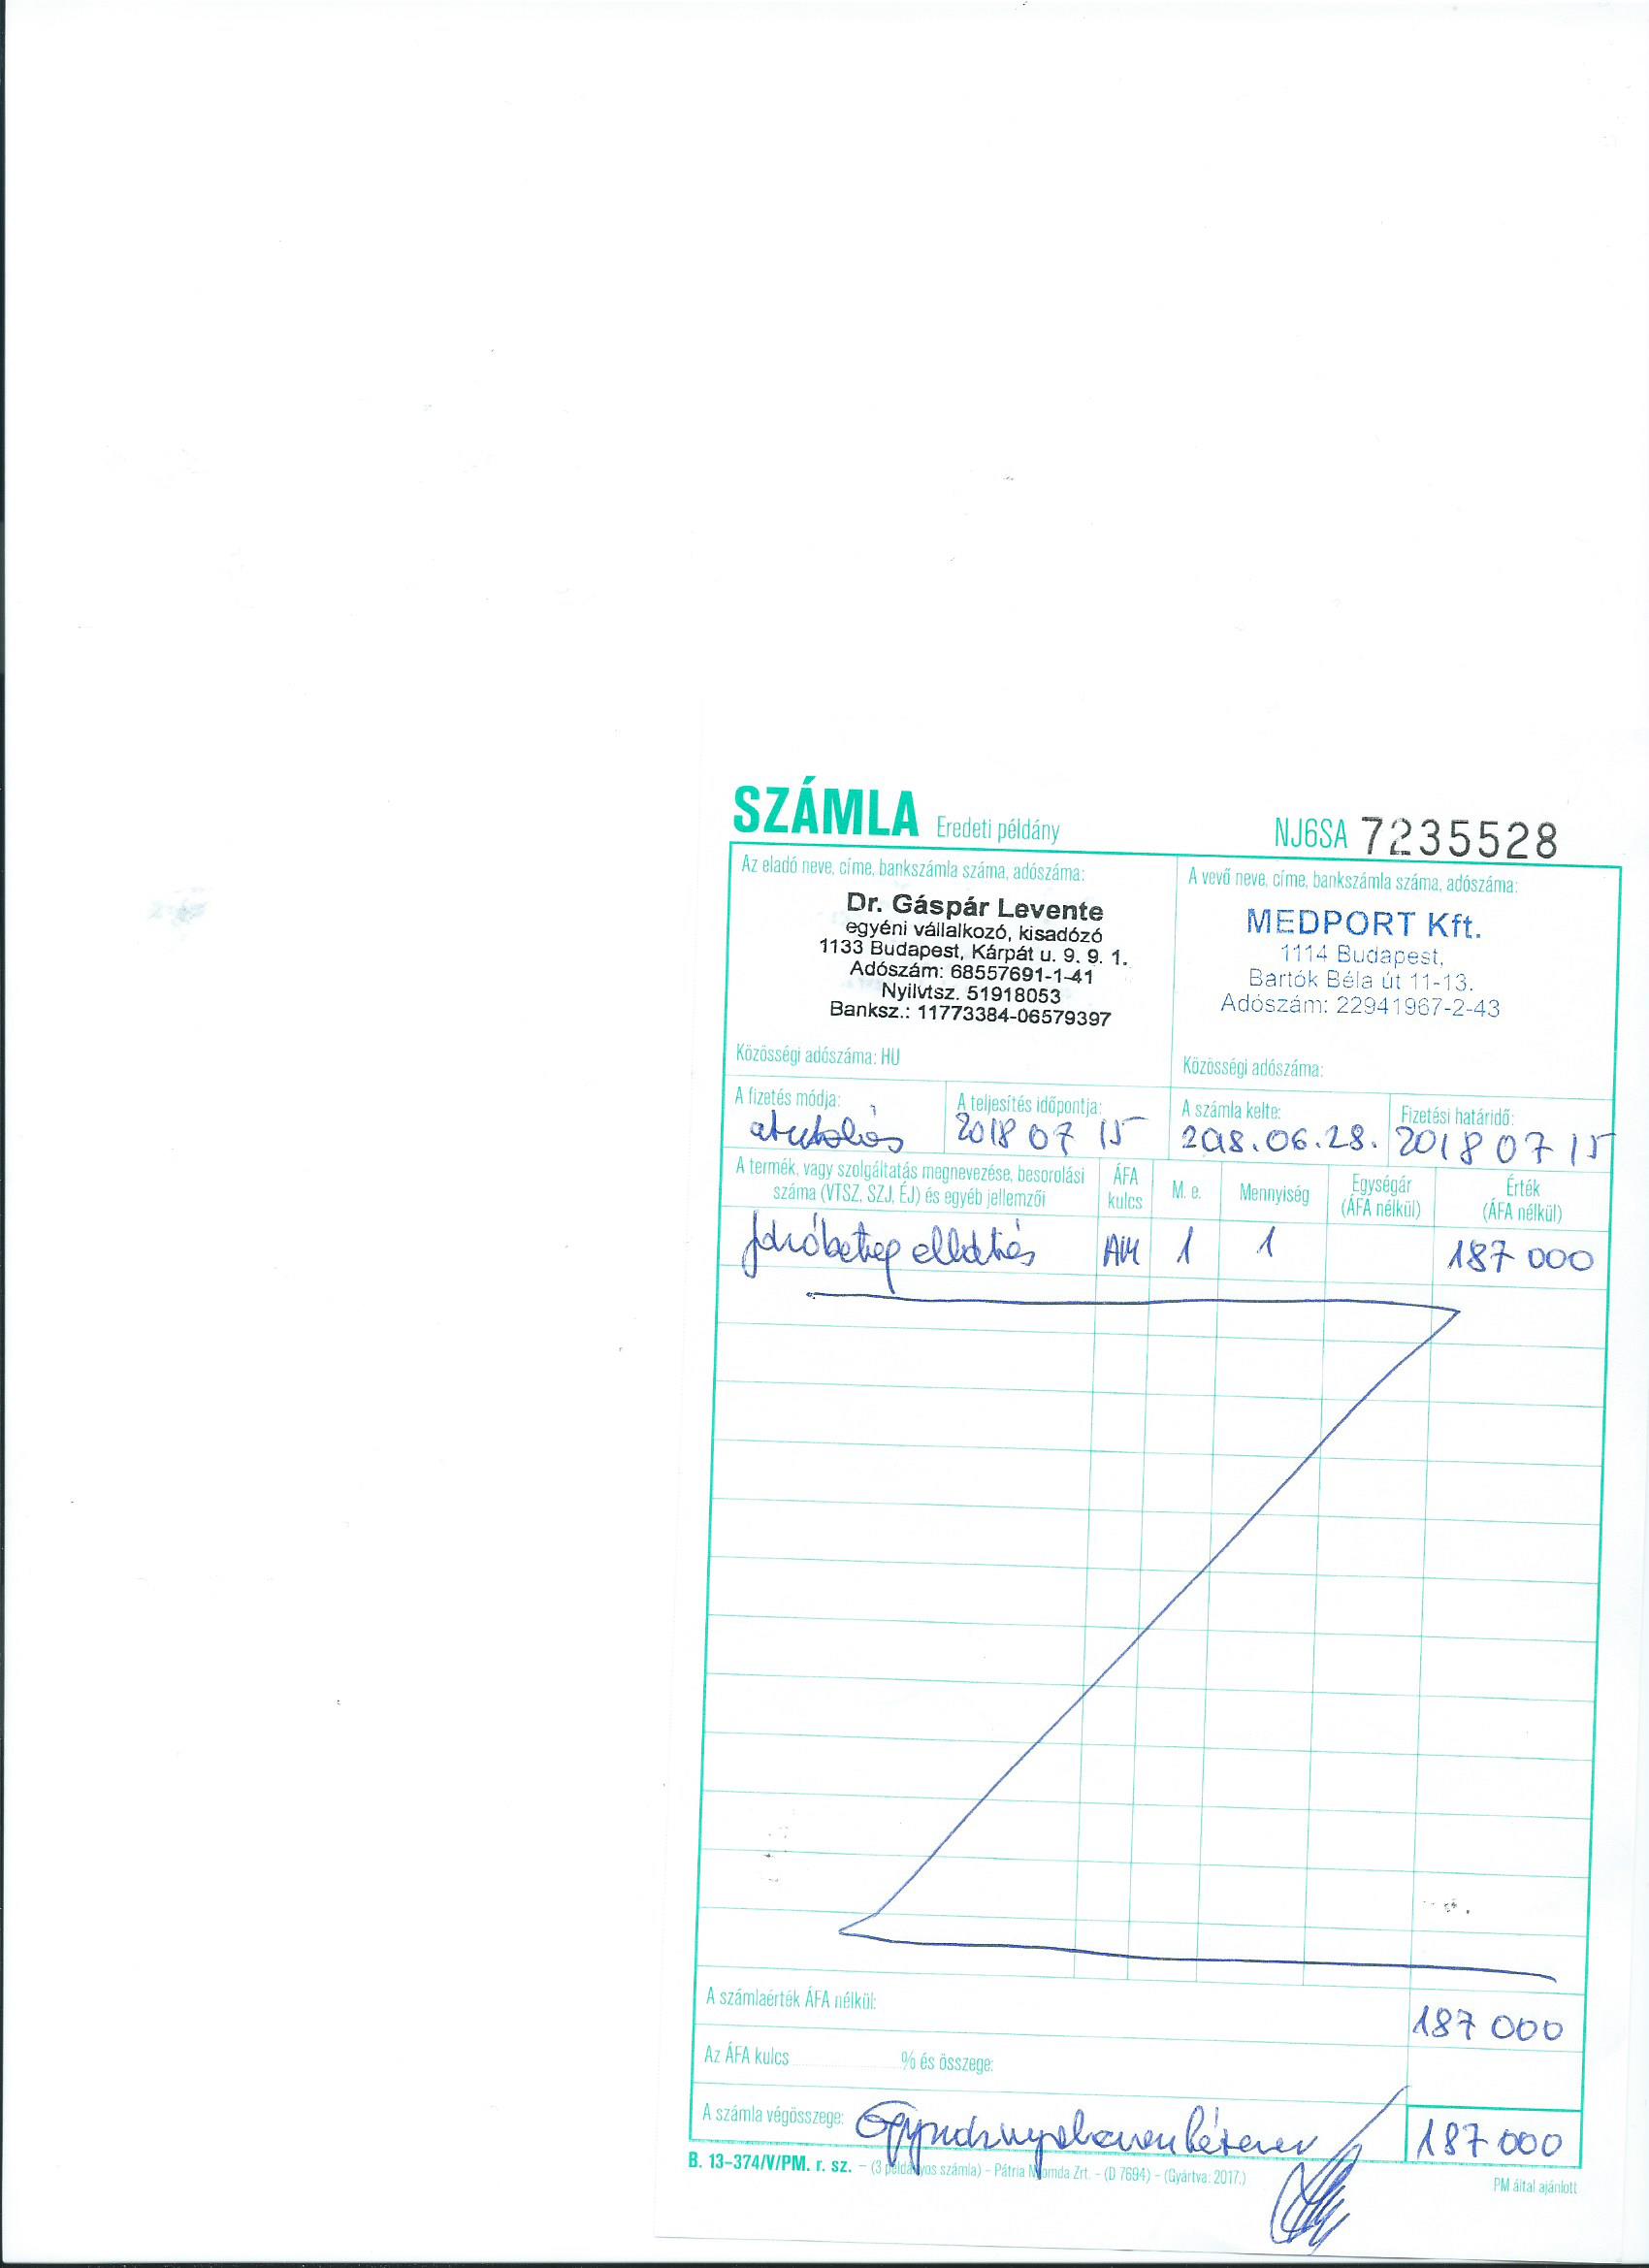 SZÁMLA Eredeti példány NJ6SA 7235528
Az eladó neve, címe, bankszámla száma, adószáma:
Dr. Gáspár Levente
egyéni vállalkozó, kisadózó
1133 Budapest, Kárpát u. 9. 9. 1.
Adószám: 68557691-1-41
Nyilvtsz. 51918053
Banksz.: 11773384-06579397
Közösségi adószáma: HU
A vevő neve, címe, bankszámla száma, adószáma:
MEDPORT Kft.
1114 Budapest,
Bartók Béla út 11-13.
Adószám: 22941967-2-43
Közösségi adószáma:
A fizetés módja:
átutalás
A teljesítés időpontja:
2018 07 15
A számla kelte:
2018.06.28.
Fizetési határidő:
2018 07 15
A termék, vagy szolgáltatás megnevezése, besorolási
száma (VTSZ, SZJ, ÉJ) és egyéb jellemzői
ÁFA
kulcs
M. e.
Mennyiség
Egységár
(ÁFA nélkül)
Érték
(ÁFA nélkül)
járóbeteg ellátás AM 1 1 187 000
A számlaérték ÁFA nélkül: 187 000
Az ÁFA kulcs % és összege:
A számla végösszege: 187 000
B. 13-374/V/PM. r. sz. – (3 példányos számla) – Pátria Nyomda Zrt. – (D 7694) – (Gyártva: 2017.)
PM által ajánlott